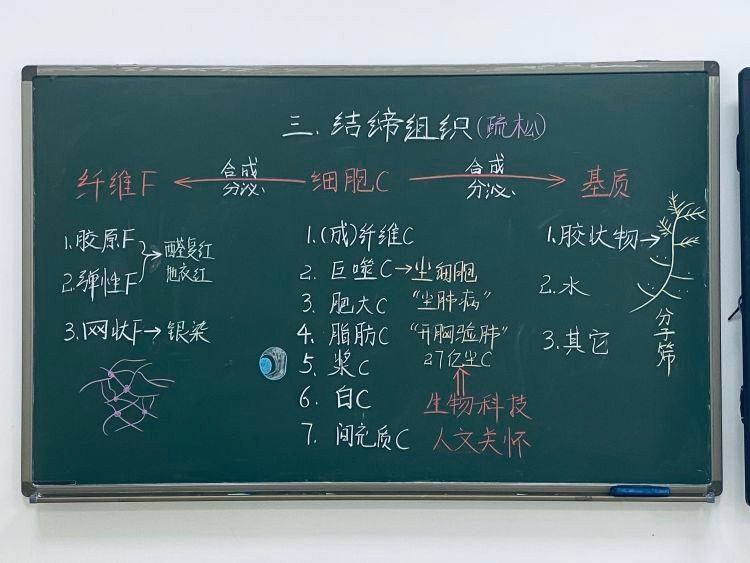 三.结缔组织(疏松)
纤维F ← 合成 分泌 细胞C 合成 分泌 → 基质
1.胶原F
2.弹性F
→醛复红
地衣红
3.网状F→银染
1.(成)纤维C
2.巨噬C→尘细胞
3.肥大C "尘肺病"
4.脂肪C "开胸验肺"
5.浆C 27亿尘C
6.白C 生物科技
7.间充质C 人文关怀
1.胶状物→
2.水
3.其它
分子筛